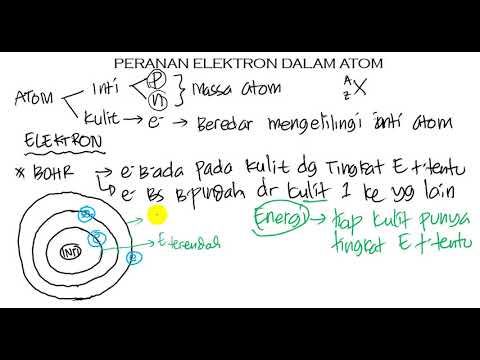 PERANAN ELEKTRON DALAM ATOM
ATOM
Inti
p
n
Massa atom
A
Z
X
Kulit → e- → Beredar mengelilingi inti atom
ELEKTRON
* BOHR → e- B-ada pada kulit dg Tingkat E t-tentu
e- Bs B-pindah dr kulit 1 ke yg lain
Energi → tiap kulit punya
tingkat E t-tentu
E terendah
Inti
e